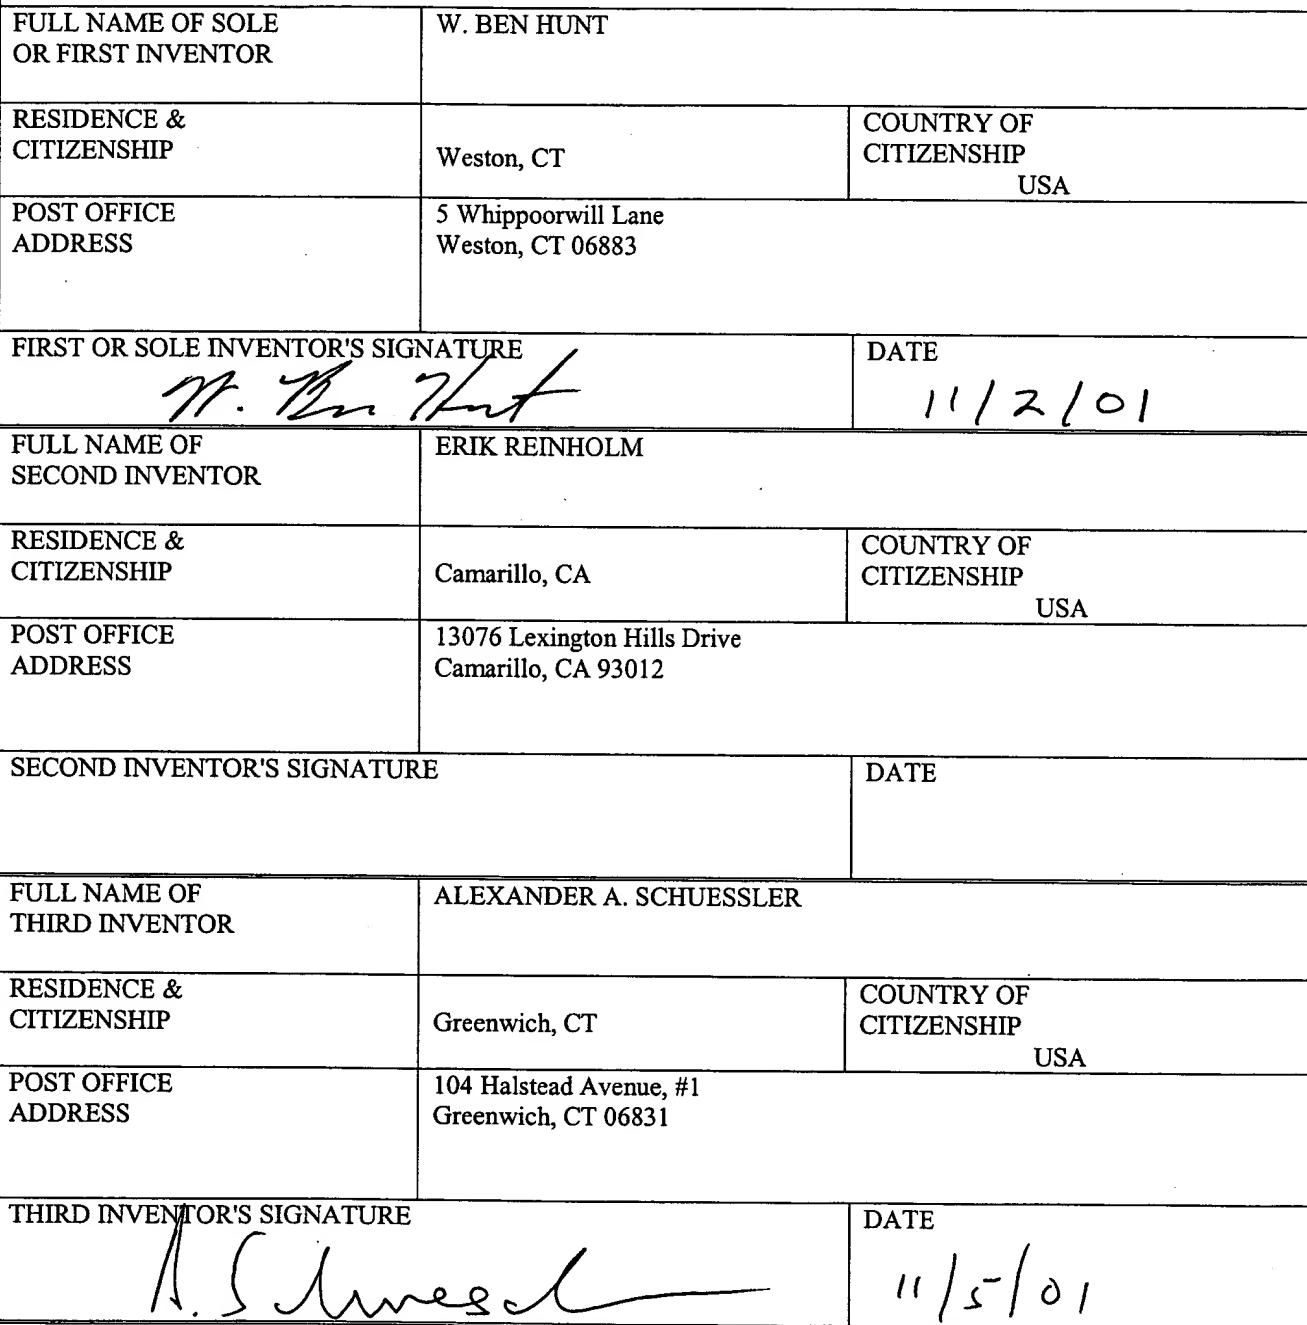 FULL NAME OF SOLE
OR FIRST INVENTOR
W. BEN HUNT
RESIDENCE &
CITIZENSHIP
Weston, CT
COUNTRY OF
CITIZENSHIP
USA
POST OFFICE
ADDRESS
5 Whippoorwill Lane
Weston, CT 06883
FIRST OR SOLE INVENTOR'S SIGNATURE
W. Ben Hunt
DATE
11/2/01
FULL NAME OF
SECOND INVENTOR
ERIK REINHOLM
RESIDENCE &
CITIZENSHIP
Camarillo, CA
COUNTRY OF
CITIZENSHIP
USA
POST OFFICE
ADDRESS
13076 Lexington Hills Drive
Camarillo, CA 93012
SECOND INVENTOR'S SIGNATURE
DATE
FULL NAME OF
THIRD INVENTOR
ALEXANDER A. SCHUESSLER
RESIDENCE &
CITIZENSHIP
Greenwich, CT
COUNTRY OF
CITIZENSHIP
USA
POST OFFICE
ADDRESS
104 Halstead Avenue, #1
Greenwich, CT 06831
THIRD INVENTOR'S SIGNATURE
A.
DATE
11/5/01